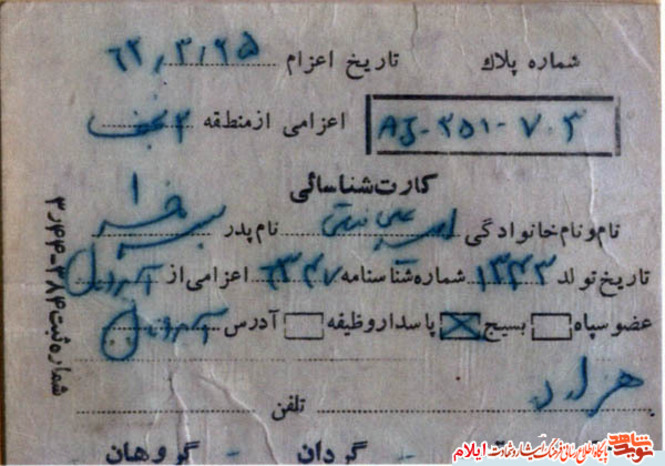 شماره پلاك تاریخ اعزام ۶۲/۳/۲۵
AJ-۲۵۱-۷۰۳ اعزامی ازمنطقه ۲ نجف
کارت شناسائی
نام ونام خانوادگی نام پدر
تاریخ تولد ۱۳۴۳ شماره شناسنامه ۶۳۴۷ اعزامی از
عضو سپاه بسیج پاسدار وظیفه آدرس
تلفن
گردان - گروهان
شماره ثبت ۳۸۴-۳٫۴۴
نوید شاهد پایگاه اطلاع رسانی فرهنگ ایثار و شهادت ایلام